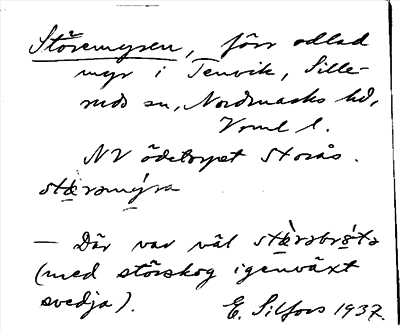 Störemyren, förr odlad
myr i Tenvik, Sille-
ruds sn, Nordmarks hd,
Vrml l.
NV ödetorpet Storås.
stæ̀rəmýra
— Där var väl stæ̀rəbrǿtə
(med störskog igenväxt
svedja). E. Silfors 1937.